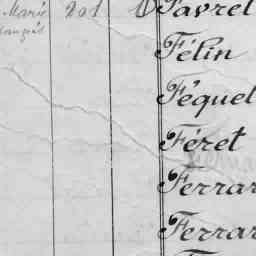 Marie 201 Favrel
Félin
Féquel
Féret
Ferrar
Ferrar